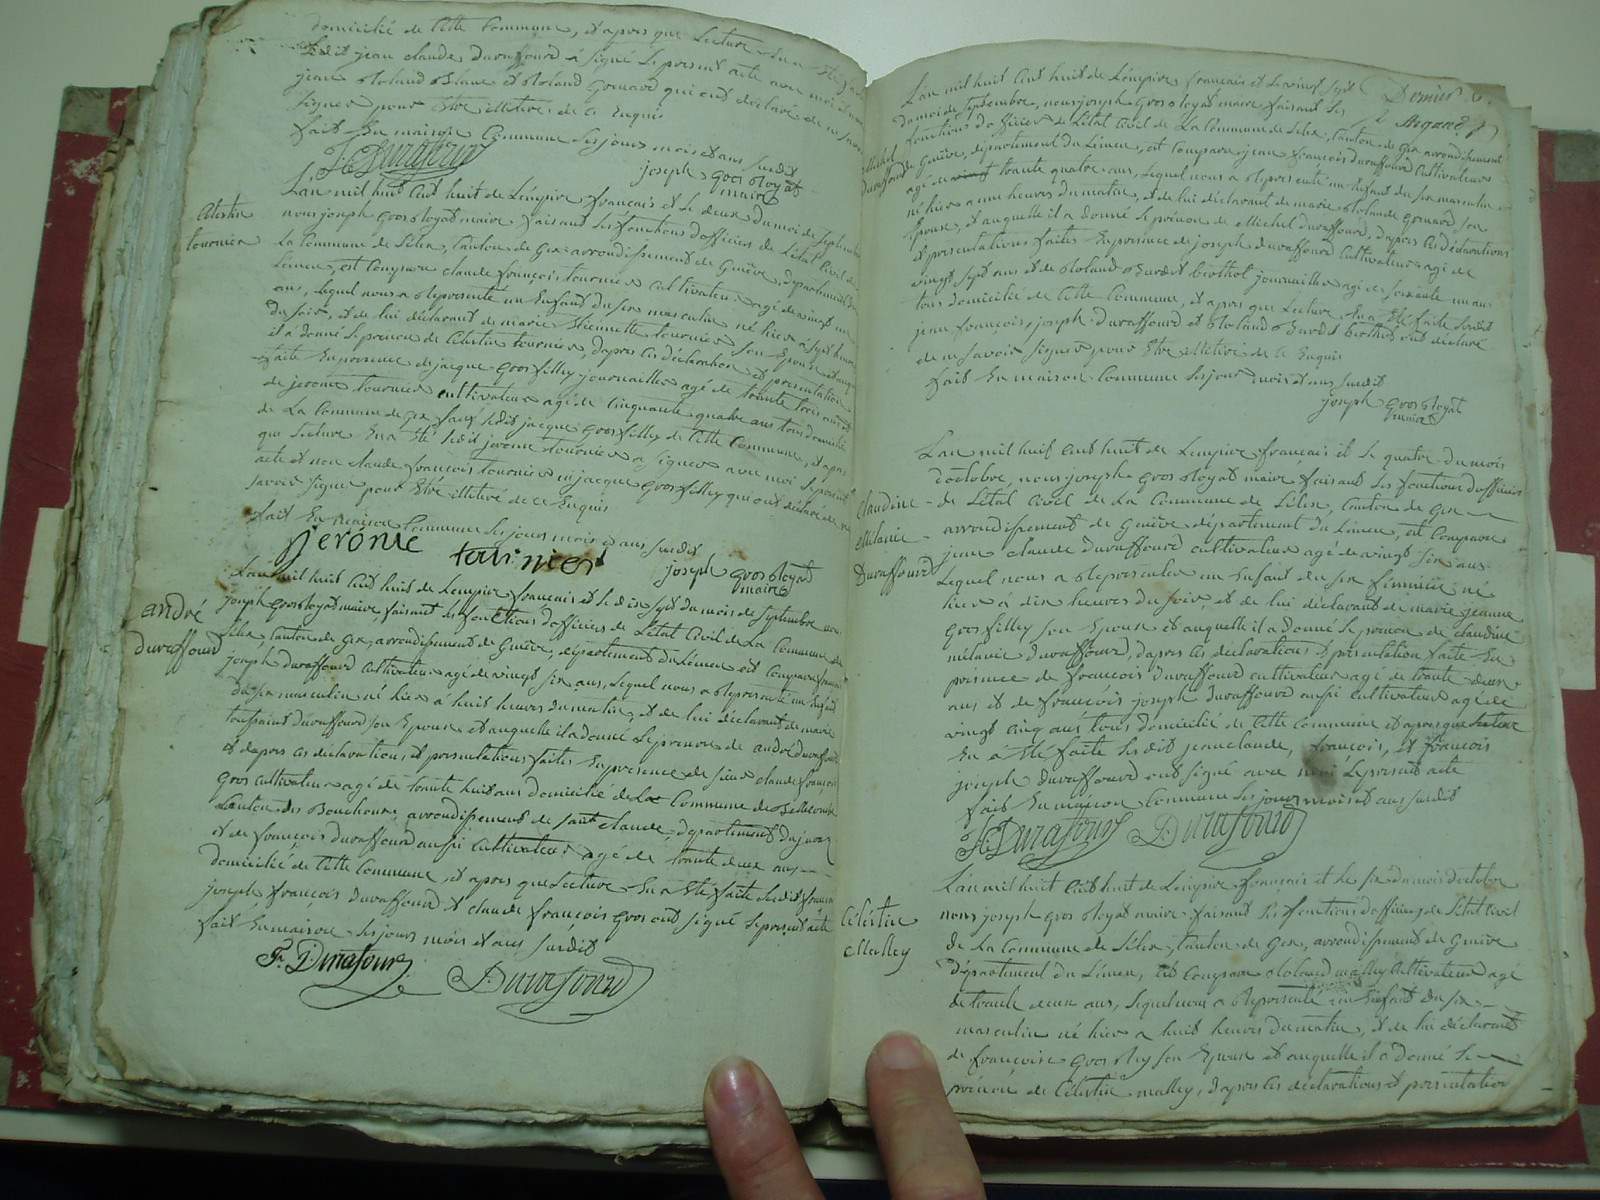 domicilié de Cette Commune, et apres que Lecture En a Eté
Ledit jean claude Duraffourd a signé Le present acte avec moi
jean Roland Blanc et Roland Gonnard qui ont déclaré de ne savoir
signer pour Etre illitiré de ce Enquis
fait En maison Commune Les jours mois et ans susdit
J. C. Durafourd joseph gros Royat
maire
Celestin
tournier
L'an mil huit Cent huit de L'empire français et Le deux du mois de Septembre
nous joseph gros Royat maire faisant Les fonctions d'officier de L'état Civil de
La Commune de Lélex, Canton de Gex arrondissement de Genève, département du
Léman, est Comparu claude françois tournier Cultivateur agé de vingt un
ans, Lequel nous a Représenté un Enfant du sex masculin né hier à sept heures
du soir, et de lui déclarant de marie Etiennette tournier son Epouse et auquel
il a donné Le prénom de Célestin tournier, d'apres Ces déclaration et présentation
faite En presence de jacque gros filley journaillier agé de trente trois ans et
de jerome tournier cultivateur agé de Cinquante quatre ans tous domicilié
de La Commune de Gex sauf Ledit jacque gros filley de Cette Commune, et apres
que Lecture En a Eté Ledit jerome tournier a signer avec moi Le present
acte et non claude françois tournier ni jacque gros filley qui ont déclaré de ne
savoir signé pour Etre illitiré de ce Enquis
fait En maison Commune Les jours mois et ans susdit
jerónie tournier joseph gros Royat
maire
andré
Duraffourd
L'an mil huit Cent huit de L'empire français et Le dix sept du mois de Septembre nous
joseph gros Royat maire, faisant Les fonctions d'officiers de L'état Civil de La Commune de
Lélex, Canton de Gex, arrondissement de Genève, département du Léman est Comparu françois
joseph duraffourd Cultivateur agé de vingt six ans, Lequel nous a Représenté un Enfant
du sex masculin né hier à huit heures du matin, et de lui déclarant de marie
toussaint duraffourd son Epouse et auquel il a donné Le prenom de andré duraffourd
et d'apres Ces déclarations, et présentations faites En presence de sieur claude françois
Gros cultivateur agé de trente huit ans domicilié de La Commune de Bellecombe
Canton des Bouchoux, arrondissement de Saint Claude, département du jura
et de françois duraffourd aussi Cultivateur agé de trente deux ans
domicilié de Cette Commune, et apres que Lecture En a Eté faite Ledit françois
joseph françois duraffourd et claude françois gros ont signé Le present acte
fait En maison Les jours mois et ans susdit
Fr. Durafour Durafourd
Dernier
Michel
duraffourd
L'an mil huit Cent huit de L'empire français et Le vingt sept
du mois de Septembre, nous joseph Gros Royat maire faisant Les
fonctions d'officier de L'état Civil de La Commune de Lélex, Canton de Gex arrondissement
de Genève, département du Léman, est Comparu jean françois duraffourd Cultivateur
agé de trente quatre ans, Lequel nous a Représenté un Enfant du sex masculin
né hier a une heures du matin, et de lui déclarant de marie Rolande Gonnard son
Epouse, et auquelle il a donné Le prénom de Michel duraffourd, d'apres Ces déclarations
et presentations faites En presence de joseph duraffourd Cultivateur agé de
vingt sept ans et de Roland Benoit berthod journaillier agé de soixante un an
tous domicilié de Cette Commune, et apres que Lecture En a Eté faite Lesdit
jean françois, joseph duraffourd et Roland Benoit berthod ont déclaré
de ne savoir signer, pour Etre illitiré de ce Enquis
fait En maison Commune Les jour mois et ans susdit
joseph gros Royat
maire
Claudine
Mélanie
Duraffourd
L'an mil huit Cent huit de L'empire français et Le quatre du mois
d'octobre, nous joseph Gros Royat maire faisant Les fonctions d'officier
de L'état Civil de La Commune de Lélex, Canton de Gex
arrondissement de Genève département du Léman, est Comparu
jean claude duraffourd cultivateur agé de vingt six ans
Lequel nous a Représenter un Enfant du sex féminin né
hier à dix heures du soir, et de lui déclarant de marie jeanne
gros filley son Epouse et auquelle il a donné Le prénom de claudine
mélanie duraffourd, d'apres Ces déclarations et présentation faite En
presence de françois duraffourd cultivateur agé de trente deux
ans et de françois joseph duraffourd aussi cultivateur agé de
vingt cinq ans tous domicilié de Cette Commune et apres que Lecture
En a Eté faite Lesdit jean claude, françois, et françois
joseph duraffourd ont signé avec moi Le present acte
fait En maison Commune Les jours mois et ans susdit
J. C. Durafourd Durafourd
Célestin
Malley
L'an mil huit Cent huit de L'empire français et Le six du mois d'octobre
nous joseph gros Royat maire faisant Les fonctions d'officier de L'état Civil
de La Commune de Lélex, Canton de Gex, arrondissement de Genève
département du Léman, est Comparu Roland malley cultivateur agé
de trente deux ans, Lequel nous a Représenté un Enfant du sex
masculin né hier a huit heures du matin, et de lui déclarant
de françoise gros Rey son Epouse et auquelle il a donné Le
prénom de Célestin malley, d'apres Ces déclarations et présentation